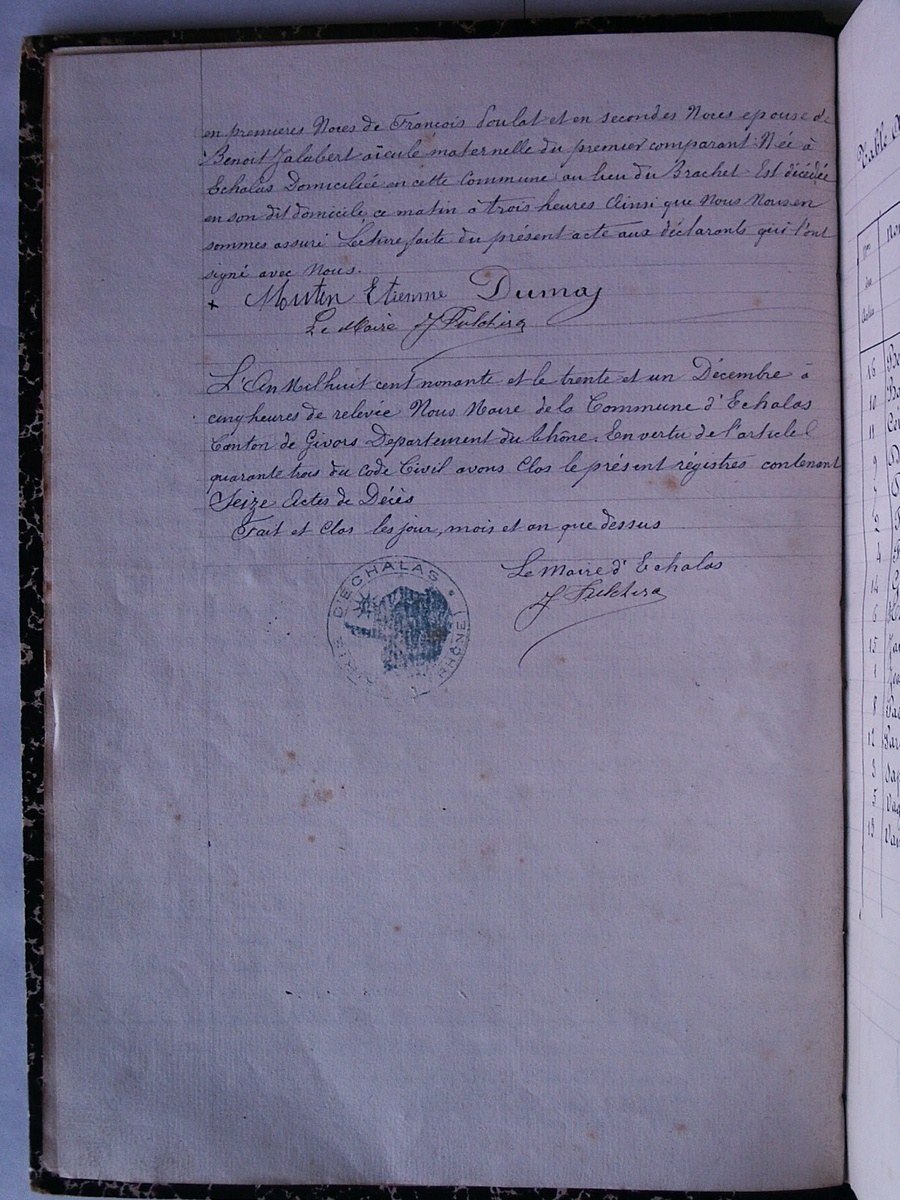 en premieres Noces de François Soulat et en secondes Noces epouse de
Benoit Jalabert aïeule maternelle du premier comparant Née à
Echalas Domiciliée en cette Commune au lieu du Brachet Est décédée
en son dit domicile ce matin à trois heures Ainsi que Nous Nous en
sommes assuré Lecture faite du présent acte aux déclarants qui l'ont
signé avec Nous.
Moutin Etienne Dumas
Le Maire J Fulchira
L'An Mil huit cent nonante et le trente et un Décembre à
cinq heures de relevée Nous Maire de la Commune d'Echalas
Canton de Givors Departement du Rhône. En vertu de l'article
quarante trois du Code Civil avons Clos le présent régistrés contenant
Seize Actes de Décès
Fait et Clos les jour, mois et an que dessus
Le Maire d'Echalas
J Fulchira
MAIRIE D'ECHALAS * (RHÔNE)
Table
16
10
11
9
2
4
14
6
15
1
8
12
3
5
13